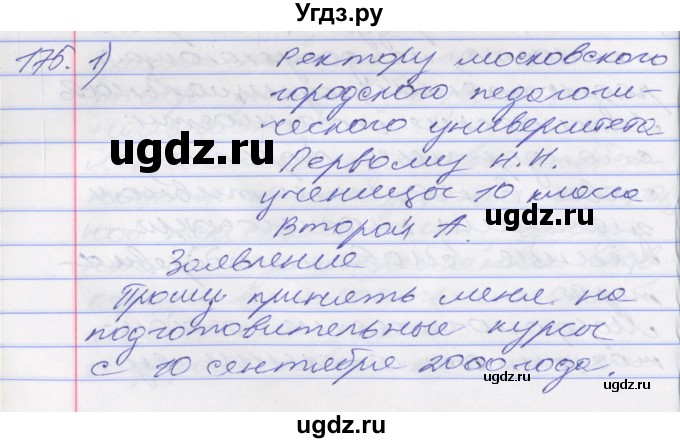 Угдз.ру
175. 1) Ректору московского
городского педагоги-
ческого университета
Первому Н.Н.
ученицы 10 класса
Второй А.
Заявление
Прошу принять меня на
подготовительные курсы
с 10 сентября 2000 года.
ugdz.ru
ugdz.ru
ugdz.ru
ugdz.ru
ugdz.ru
Угдз.ру